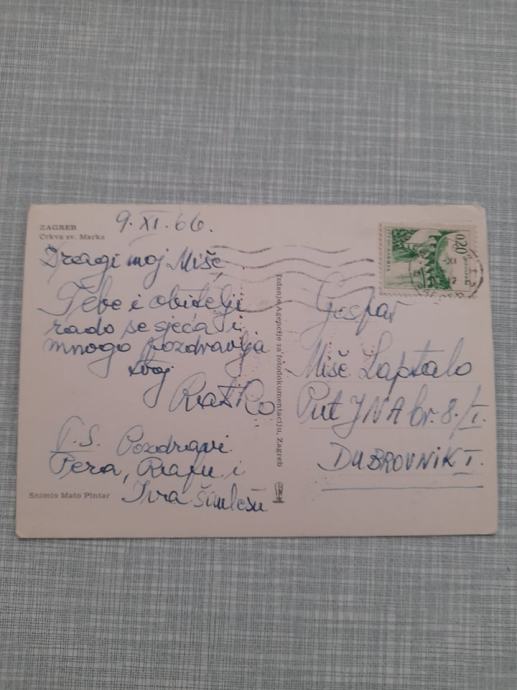 ZAGREB
Crkva sv. Marka
9. XI. 66.
Dragi moj Miše,
Tebe i obitelj
rado se sjeća i
mnogo pozdravlja
tvoj
Ratko
P.S. Pozdravi
Pera, i
Iva
Snimio Mato Pintar
Izdanje Agencije za fotodokumentaciju, Zagreb
0,20
Gospar
Miše Laptalo
Put JNA br. 8/I.
DUBROVNIK I.